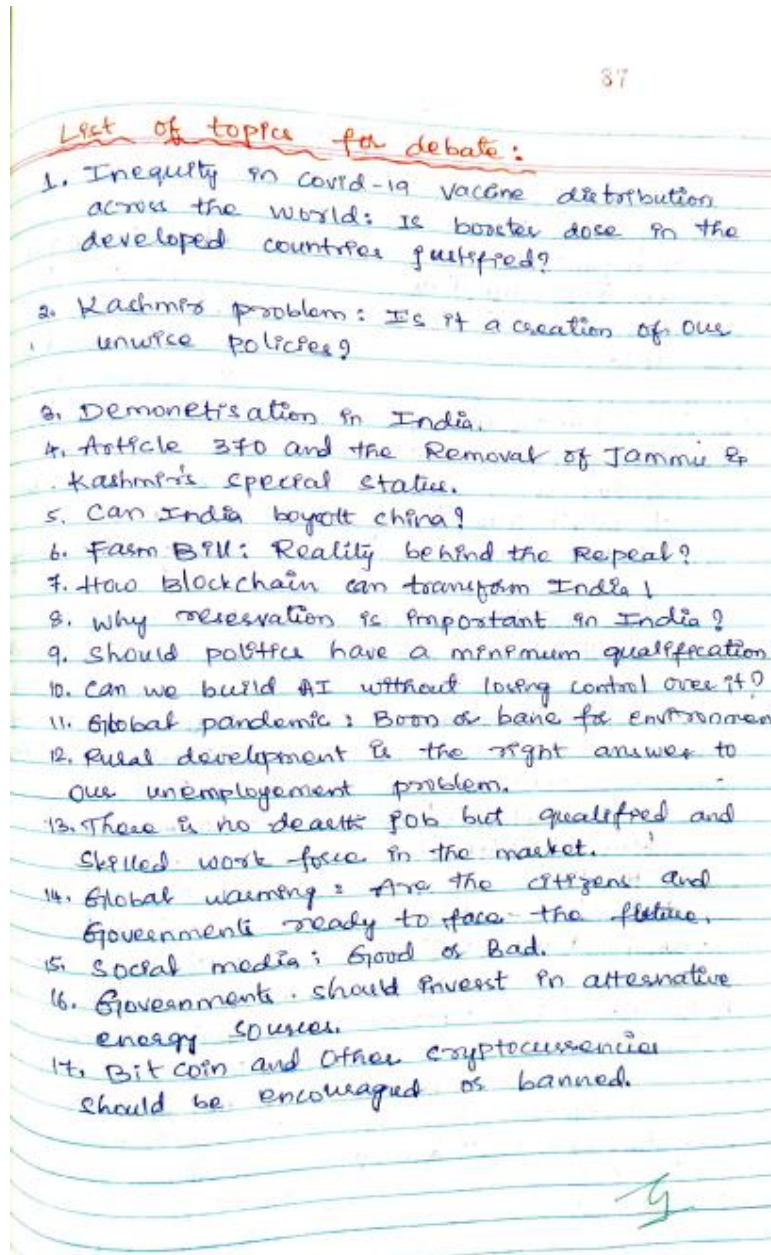 87
List of topics for debate:
1. Inequity in covid-19 vaccine distribution
across the world: Is booster dose in the
developed countries justified?
2. Kashmir problem: Is it a creation of our
unwise policies?
3. Demonetisation in India.
4. Article 370 and the Removal of Jammu &
Kashmir's special status.
5. Can India boycott china?
6. Farm Bill: Reality behind the Repeal?
7. How blockchain can transform India!
8. Why reservation is important in India?
9. Should politics have a minimum qualification
10. Can we build AI without losing control over it?
11. Global pandemic: Boon or bane for environmen
12. Rural development is the right answer to
our unemployement problem.
13. There is no dearth job but qualified and
skilled work force in the market.
14. Global warming: Are the citizens and
Governments ready to face the future.
15. Social media: Good or Bad.
16. Governments. should invest in alternative
energy sources.
17. Bit coin and other cryptocurrencies
should be encouraged or banned.